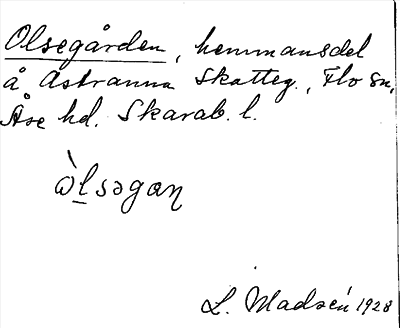 Olsegården, hemmansdel
å Åstranna Skatteg., Flo sn,
Åse hd. Skarab. l.
ὼl̠səgaɳ
L. Madsén 1928